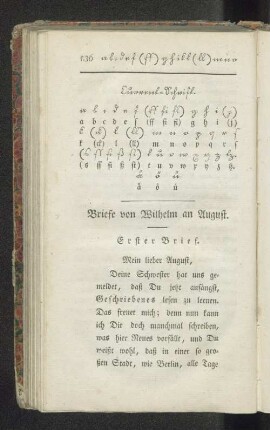 136 a b c d e f (ff) g h i k l l (ll) m n o
Current-Schrift.
a b c d e f (ff fi fl) g h i (j)
a b c d e f (ff fi fl) g h i (j)
k (ck) l (ll) m n o p q r s
k (ck) l (ll) m n o p q r s
ä ö ü
ä ö ü
Briefe von Wilhelm an August.
Erster Brief.
Mein lieber August,
Deine Schwester hat uns ge-
meldet, daß Du jetzt anfängst,
Geschriebenes lesen zu lernen.
Das freuet mich; denn nun kann
ich Dir doch manchmal schreiben,
was hier Neues vorfällt, und Du
weißt wohl, daß in einer so gro-
ßen Stadt, wie Berlin, alle Tage